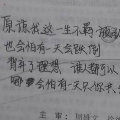 原谅我这一生不羁放
也会怕有一天会跌倒
背弃了理想 谁人都可以
哪会怕有一天只你共
主 审: